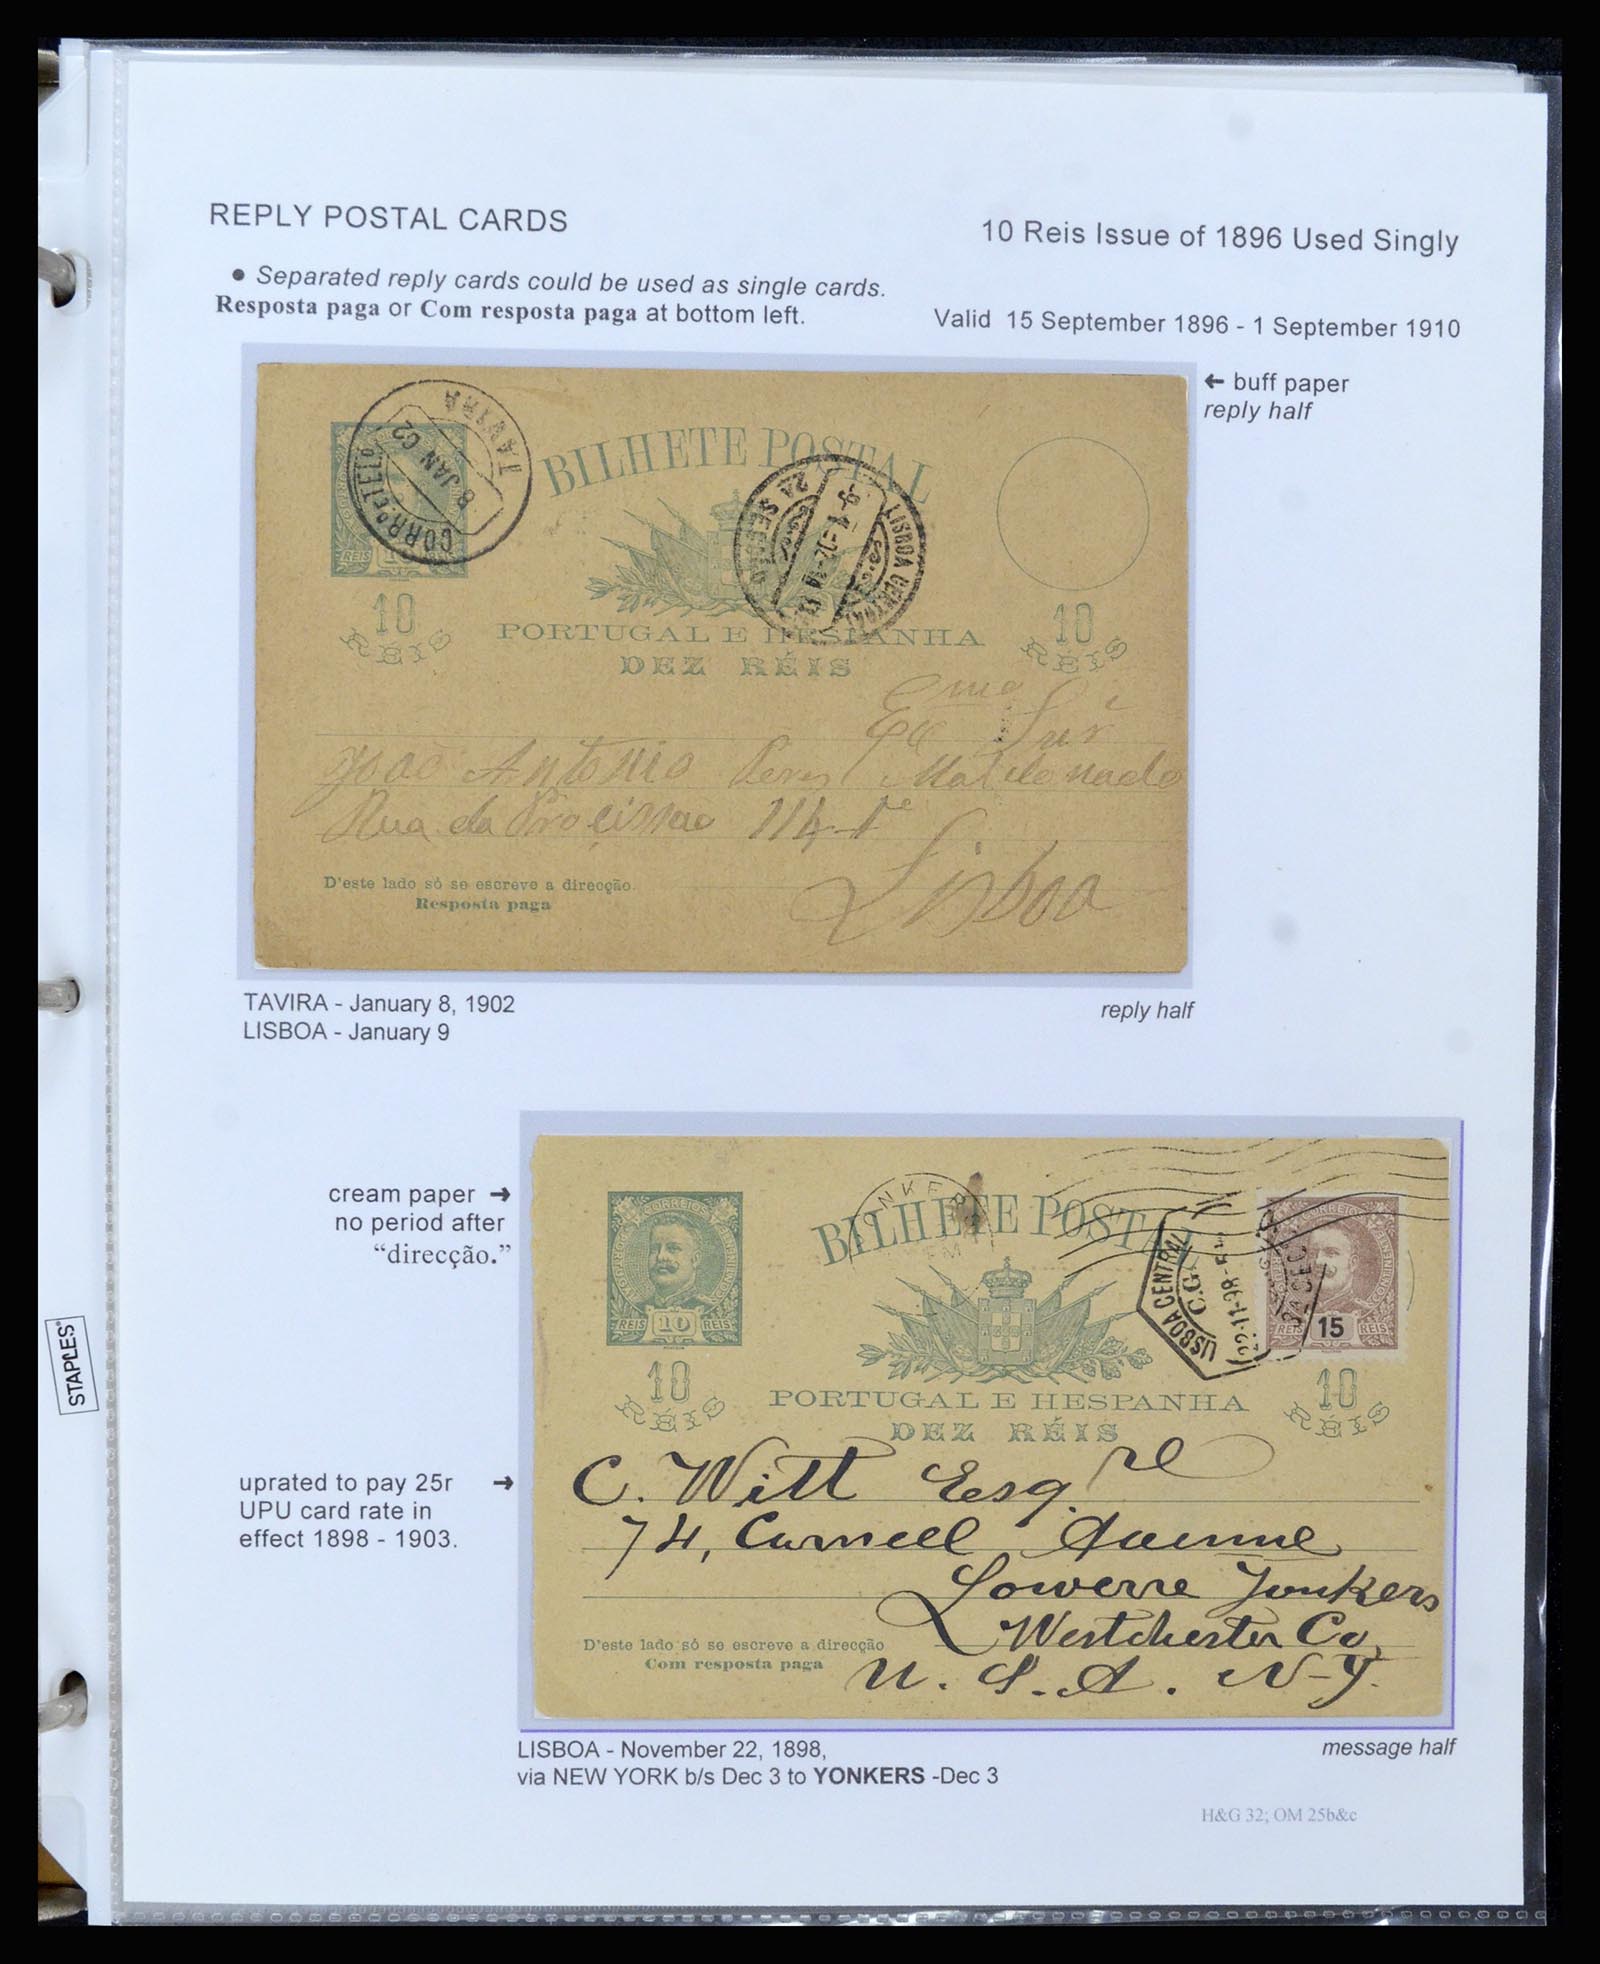 REPLY POSTAL CARDS
10 Reis Issue of 1896 Used Singly
● Separated reply cards could be used as single cards.
Resposta paga or Com resposta paga at bottom left.
Valid 15 September 1896 - 1 September 1910
← buff paper
reply half
CORRº E TELº
8 JAN 02
TAVIRA
REIS
BILHETE POSTAL
LISBOA CENTRAL
2A SECÇÃO
10 RÉIS
10 RÉIS
PORTUGAL E HESPANHA
DEZ RÉIS
Emo
João Antonio Peres
Rua da Procissão 114-1º
Lisboa
D'este lado só se escreve a direcção.
Resposta paga
TAVIRA - January 8, 1902
LISBOA - January 9
reply half
cream paper →
no period after
“direcção.”
CORREIOS
REIS 10 REIS
BILHETE POSTAL
LISBOA CENTRAL
C.G.
22-11-98
CORREIOS
REIS 15 REIS
10 RÉIS
10 RÉIS
PORTUGAL E HESPANHA
DEZ RÉIS
uprated to pay 25r →
UPU card rate in
effect 1898 - 1903.
C. Witt Esqre
74, Curneel Avenue
Lowerre Yonkers
Westchester Co,
U. S. A. N-Y.
D'este lado só se escreve a direcção
Com resposta paga
LISBOA - November 22, 1898,
via NEW YORK b/s Dec 3 to YONKERS -Dec 3
message half
H&G 32; OM 25b&c
STAPLES